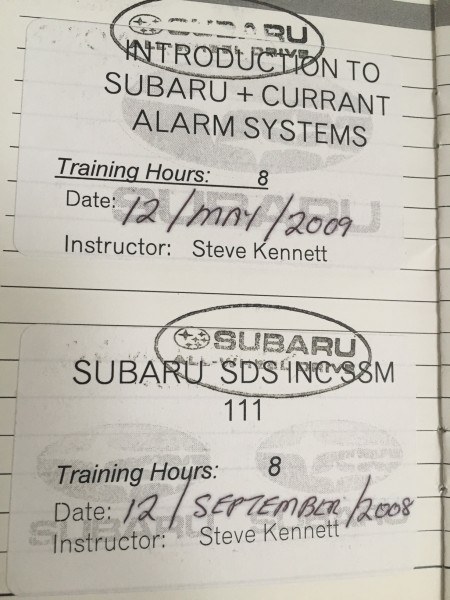 SUBARU
ALL-WHEEL DRIVE
INTRODUCTION TO
SUBARU + CURRANT
ALARM SYSTEMS
Training Hours: 8
SUBARU
Date: 12/MAY/2009
Instructor: Steve Kennett
SUBARU
ALL-WHEEL DRIVE
SUBARU SDS INC SSM
111
Training Hours: 8
Date: 12/SEPTEMBER/2008
SUBARU SUBARU
Instructor: Steve Kennett